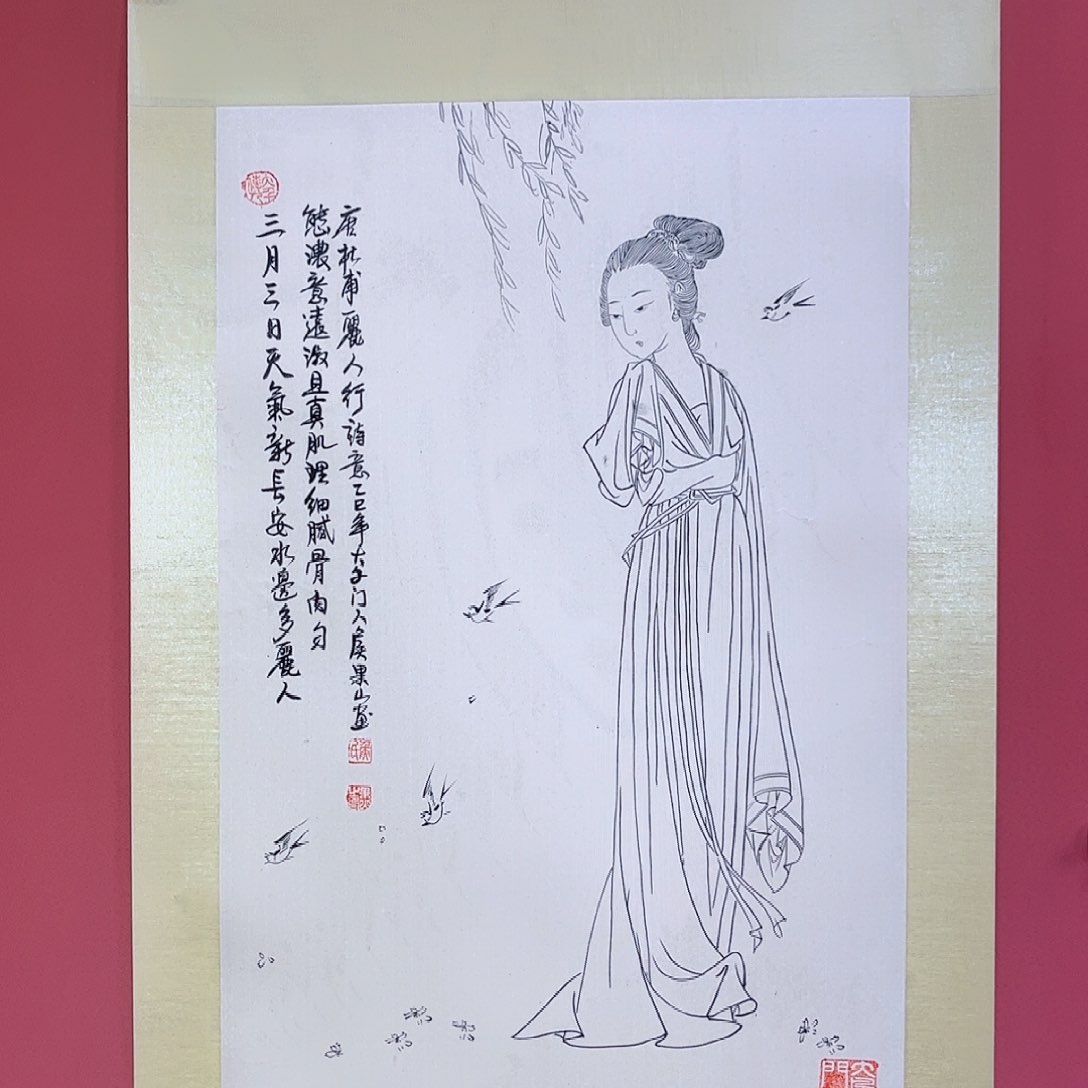 三月三日天氣新長安水邊多麗人
態濃意遠淑且真肌理細膩骨肉匀
唐杜甫麗人行詩意乙巳年大千门人侯果山畫